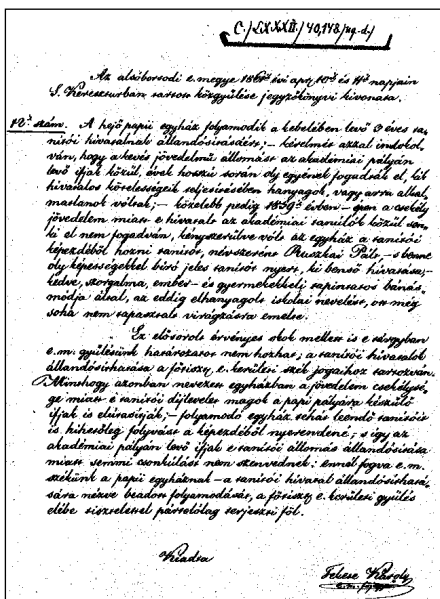 C./LXXXII/40,148/ng.d./
Az alsóborsodi e. megye 1861. évi apr. 10d. és 11d. napjain
S. Kereszturban tartott közgyülése jegyzőkönyvi kivonata.
12d. szám. A hejő papii egyház folyamodik a kebelében levő 3 éves ta-
nitói hivatalnak állandósittatásáért; – kérelmét azzal indokol-
ván, hogy a kevés jövedelmű állomást az akadémiai pályán
levő ifjak közül, évek hosszú során oly egyének fogadták el, kik
hivatalos kötelességeik teljesitésében hanyagok, vagy arra alkal-
matlanok voltak; – közelebb pedig 1859d. évben – épen a csekély
jövedelem miatt e hivatalt az akadémiai tanulók közül sen-
ki el nem fogadván, kényszerülve volt az egyház a tanitói
képezdéből hozni tanitót, névszerint Ruszkai Pált, – s benne
oly képességekkel biró jeles tanitót nyert, ki benső hivatása,
kedve, szorgalma, ember- és gyermekekkeli tapintatos bánás-
módja által, az eddig elhanyagolt iskolai nevelést, ott még
soha nem tapasztalt virágzásra emelte.
Ez elősorolt érvényes okok mellett is e tárgyban
e.m. gyülésünk határozatot nem hozhat; a tanitói hivatalok
állandósithatása a főtiszt. e. kerületi szék jogaihoz tartozván.
Minthogy azonban nevezett egyházban a jövedelem csekélysé-
ge miatt e tanitói díjlevelet magok a papi pályára készülő
ifjak is elutasitják; – folyamodó egyház tehát leendő tanitóit
is hihetőleg folyvást a képezdéből nyerendené; s igy az
akadémiai pályán levő ifjak e tanitói állomás állandósittatása
miatt semmi csonkulást nem szenvednek: ennél fogva e.m.
székünk a papii egyháznak – a tanitói hivatal állandósithatá-
sára nézve beadott folyamodását, a főtiszt. e. kerületi gyülés
elébe tisztelettel pártolólag terjeszti föl.
Kiadta
Fekese Károly